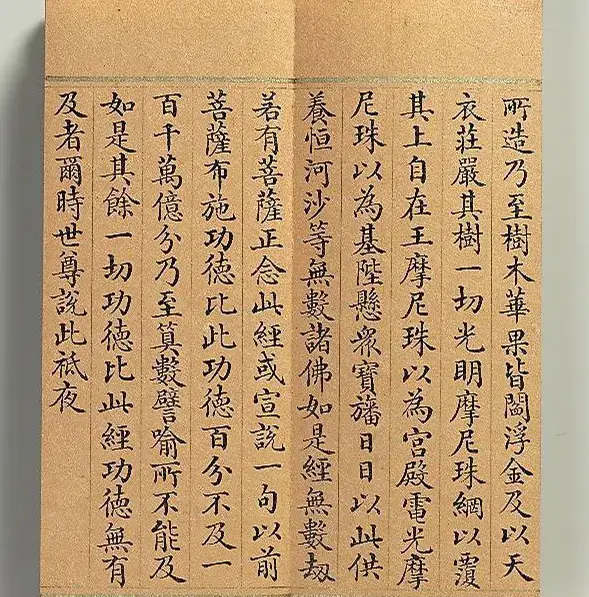 所造乃至樹木華果皆閻浮金及以天
衣莊嚴其樹一切光明摩尼珠網以覆
其上自在王摩尼珠以為宮殿電光摩
尼珠以為基陛懸眾寶旛日日以此供
養恒河沙等無數諸佛如是經無數劫
若有菩薩正念此經或宣說一句以前
菩薩布施功德比此功德百分不及一
百千萬億分乃至算數譬喻所不能及
如是其餘一切功德比此經功德無有
及者爾時世尊說此祇夜